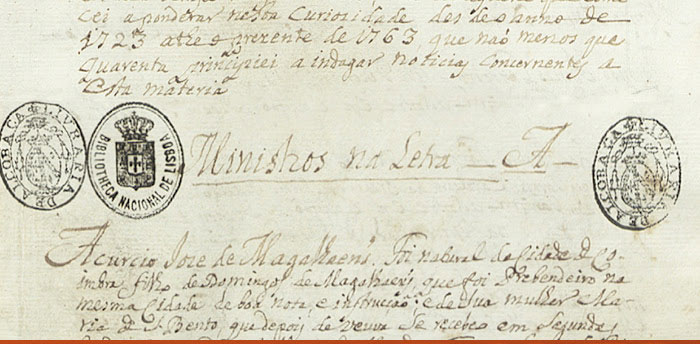 Lei aponderar nesta curiozidade des do anno de
1723 athe o prezente de 1763 que naõ menos que
quarenta principiei a indagar noticias concernentes a
esta materia
LIVRARIA DE ALCOBAÇA
BIBLIOTHECA NACIONAL DE LISBOA
LIVRARIA DE ALCOBAÇA
Ministros na Letra - A -
Acurcio Joze de Magalhaens. Foi natural da Cidade de Co
imbra filho de Domingos de Magalhaens, que foi Prebendeiro na
mesma Cidade de boa nota, e instrucçaõ; e de sua mulher Ma
ria de S. Bento, que depois de veuva se recebeo em segundas